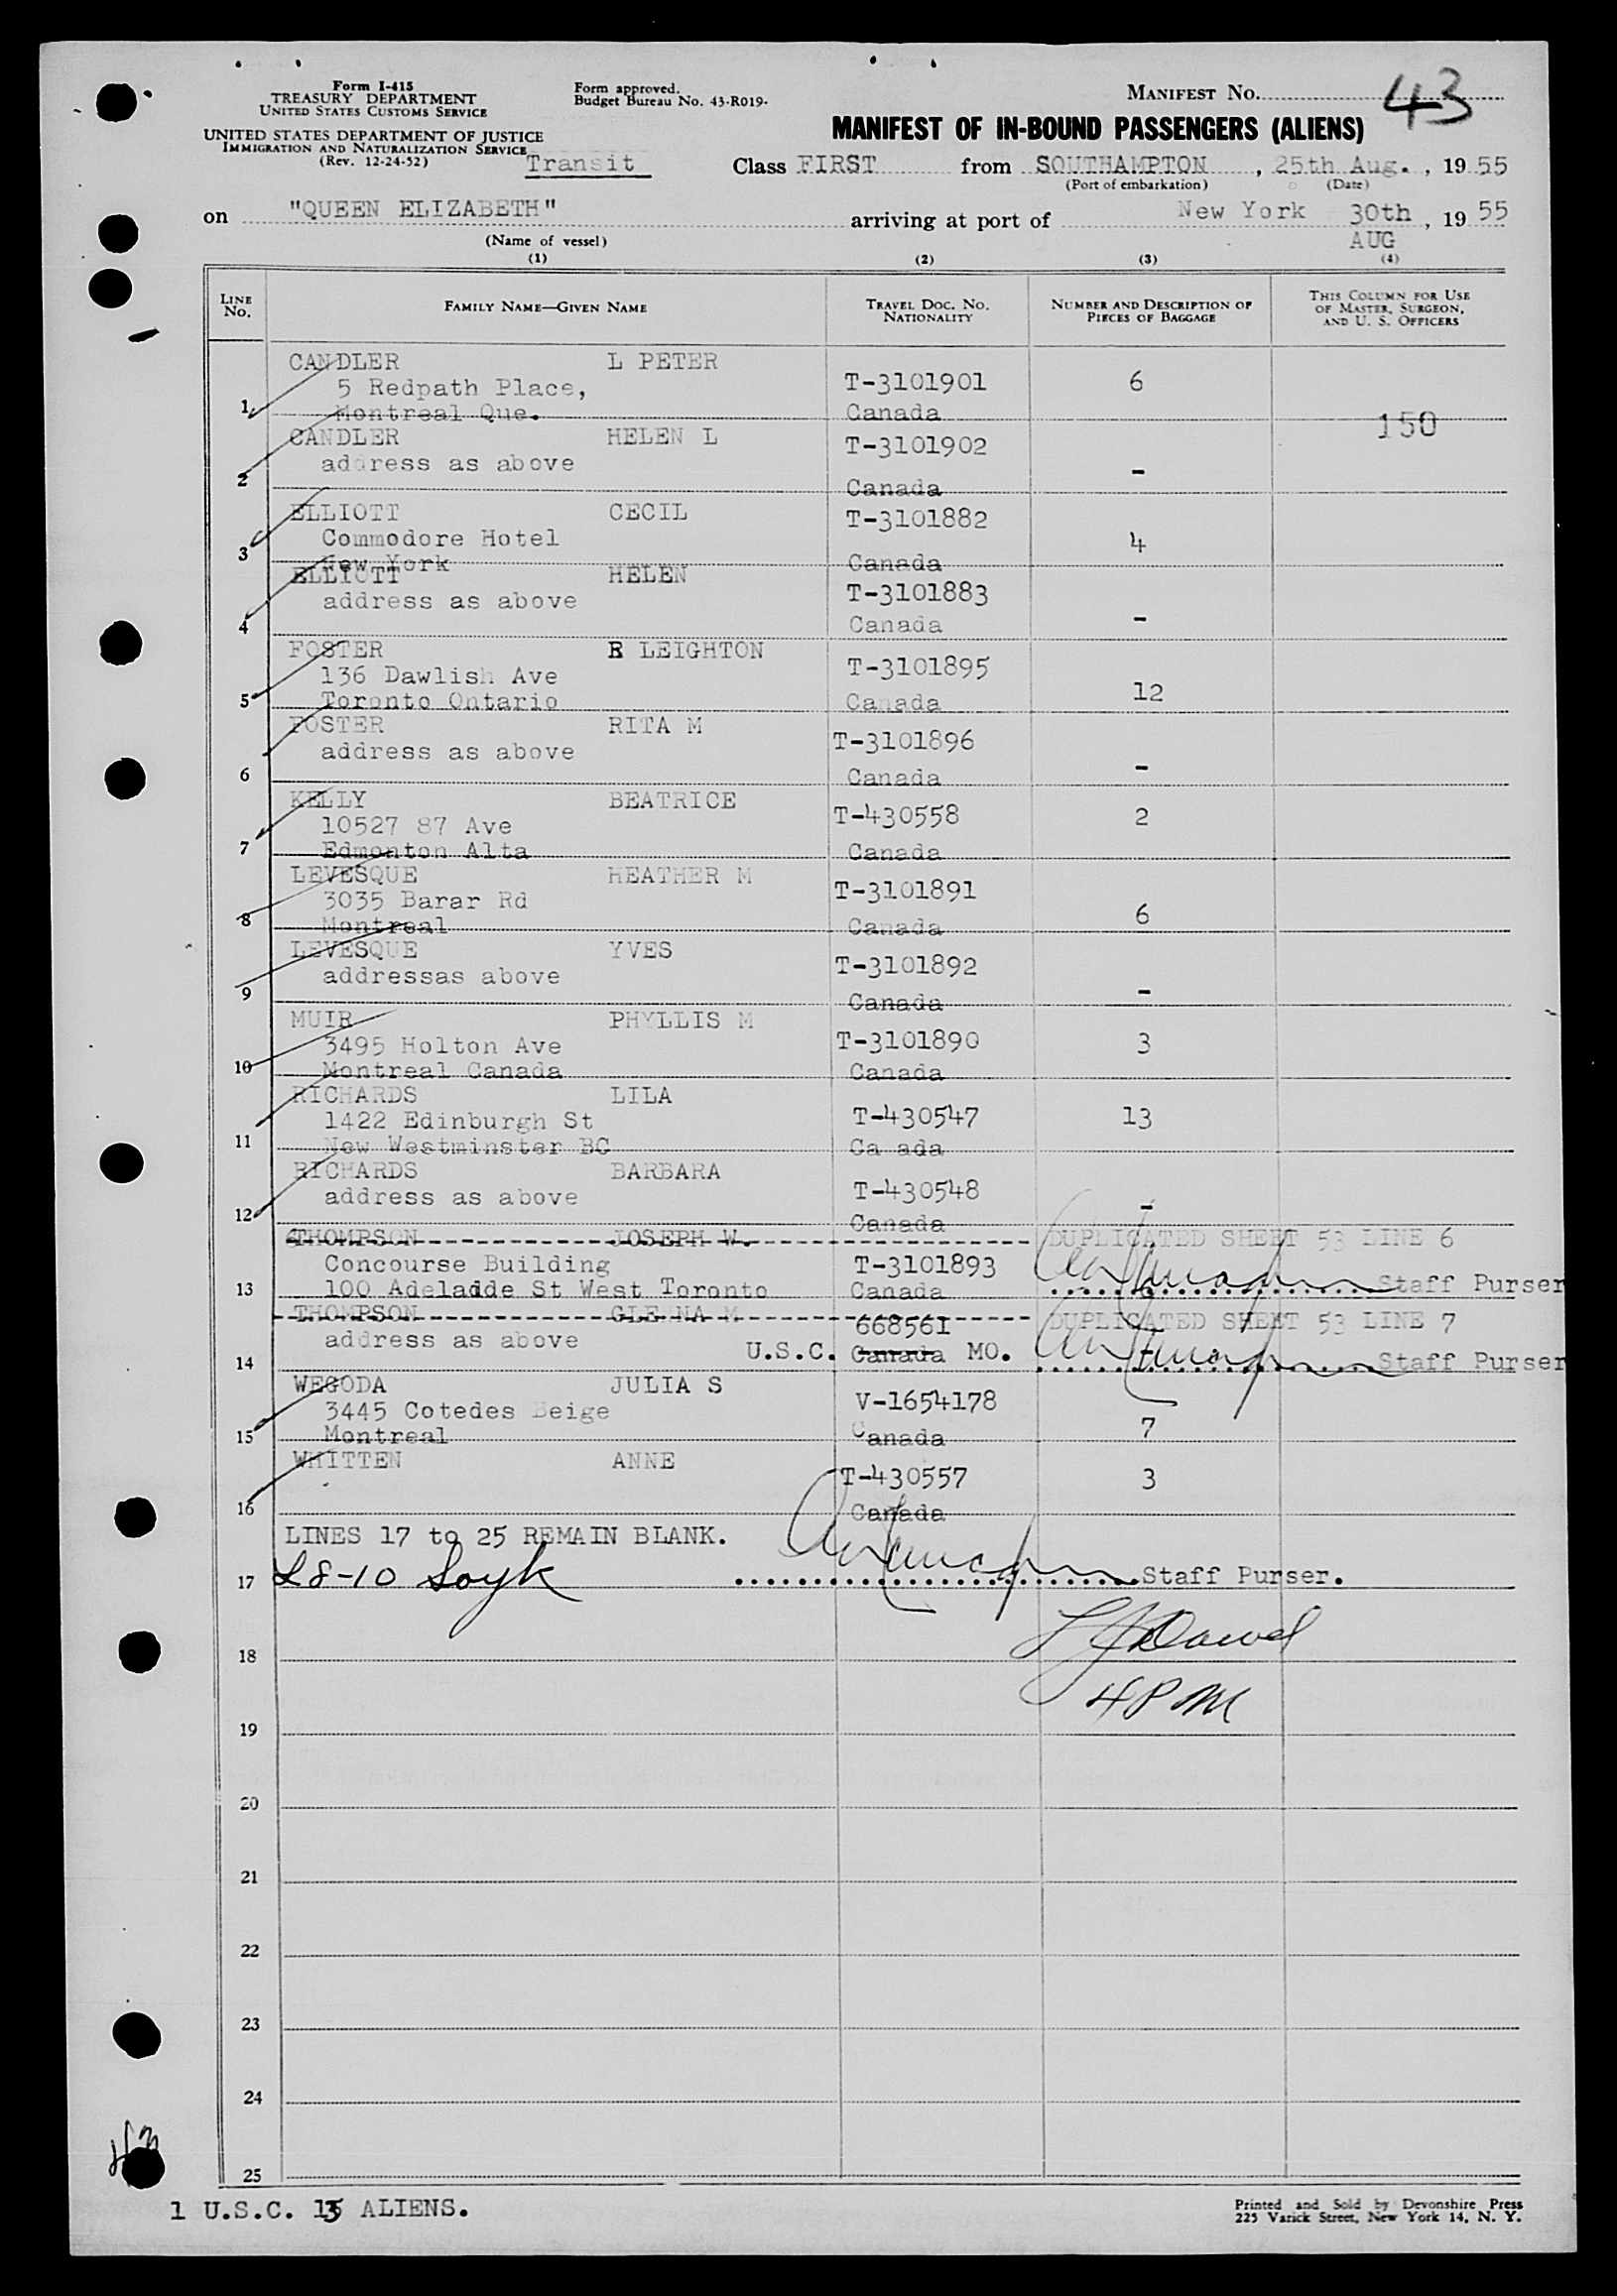 Form I-415
TREASURY DEPARTMENT
UNITED STATES CUSTOMS SERVICE
UNITED STATES DEPARTMENT OF JUSTICE
IMMIGRATION AND NATURALIZATION SERVICE
(Rev. 12-24-52)
Form approved.
Budget Bureau No. 43-R019.
MANIFEST NO. 43
MANIFEST OF IN-BOUND PASSENGERS (ALIENS)
Transit Class FIRST from SOUTHAMPTON, 25th Aug., 19 55
(Port of embarkation) (Date)
on "QUEEN ELIZABETH" arriving at port of New York 30th, 19 55
AUG
(Name of vessel)
(1) (2) (3) (4)
LINE No. FAMILY NAME—GIVEN NAME TRAVEL DOC. NO. NATIONALITY NUMBER AND DESCRIPTION OF PIECES OF BAGGAGE THIS COLUMN FOR USE OF MASTER, SURGEON, AND U. S. OFFICERS
CANDLER L PETER
5 Redpath Place, T-3101901 6
1 Montreal Que. Canada
150
CANDLER HELEN L T-3101902
address as above -
2 Canada
ELLIOTT CECIL T-3101882
Commodore Hotel 4
3 New York Canada
ELLIOTT HELEN T-3101883
address as above -
4 Canada
FOSTER R LEIGHTON T-3101895
136 Dawlish Ave
5 Toronto Ontario Canada 12
FOSTER RITA M T-3101896
address as above -
6 Canada
KELLY BEATRICE T-430558 2
10527 87 Ave
7 Edmonton Alta Canada
LEVESQUE HEATHER M T-3101891
3035 Barar Rd 6
8 Montreal Canada
LEVESQUE YVES T-3101892
addressas above -
9 Canada
MUIR PHYLLIS M T-3101890 3
3495 Holton Ave
10 Montreal Canada Canada
RICHARDS LILA T-430547 13
1422 Edinburgh St
11 New Westminster BC Ca ada
RICHARDS BARBARA T-430548
address as above -
12 Canada
THOMPSON JOSEPH W. DUPLICATED SHEET 53 LINE 6
Concourse Building T-3101893 Staff Purser
13 100 Adeladde St West Toronto Canada
THOMPSON GLE NA M DUPLICATED SHEET 53 LINE 7
address as above 668561
14 U.S.C. Canada MO. Staff Purser
WEGODA JULIA S V-1654178
3445 Cotedes Beige 7
15 Montreal Canada
WHITTEN ANNE T-430557 3
16 Canada
LINES 17 to 25 REMAIN BLANK.
17 L8-10 Staff Purser.
18
4 PM
19
20
21
22
23
24
25
1 U.S.C. 13 ALIENS.
Printed and Sold by Devonshire Press
225 Varick Street, New York 14, N. Y.